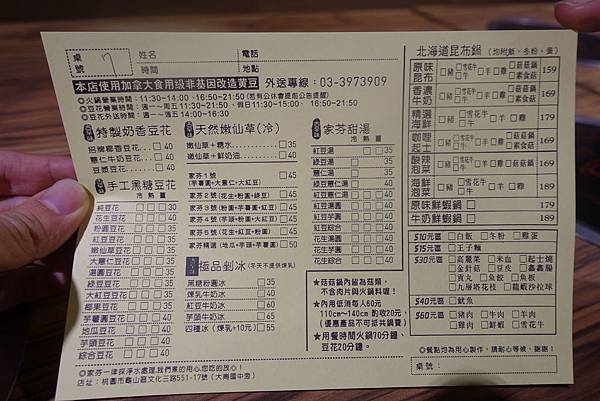 桌號
姓名
電話
時間
地點
本店使用加拿大食用級非基因改造黃豆 外送專線：03-3973909
◎火鍋營業時間：11:30~14:00、16:50~21:50(若有公休會提前公告提醒)
◎豆花營業時間：週一~週五11:30~21:50、假日11:30~15:00、16:50~21:50
◎豆花外送時間：週一~週五14:00~16:30
特製奶香豆花
招牌椰香豆花 40
薏仁牛奶豆花 40
豆漿豆花 40
手工黑糖豆花
冷 熱 薑
純豆花 30
花生豆花 40
粉圓豆花 35
紅豆豆花 35
芋圓豆花 40
大薏仁豆花 35
湯圓豆花 35
綠豆豆花 35
大紅豆豆花 40
椰果豆花 35
芋薯圓豆花 40
地瓜豆花 40
芋頭豆花 40
綜合豆花 40
天然嫩仙草(冷)
嫩仙草＋糖水 35
嫩仙草＋鮮奶油 40
家芬1號 45
(芋薯圓+大薏仁+大紅豆)
家芬2號(花生+粉圓+綠豆) 45
家芬3號(粉圓+芋薯圓+紅豆) 45
家芬4號(芋頭+粉圓+大紅豆) 45
家芬5號(花生+紅豆+粉圓) 45
家芬精選(地瓜+芋頭+芋圓) 50
極品剉冰(冬天不提供煉乳)
黑糖粉圓冰 35
煉乳牛奶冰 35
紅豆牛奶冰 40
芋頭牛奶冰 65
四種冰(煉乳+10元) 55
家芬甜湯
冷 熱 薑
紅豆湯 35
綠豆湯 35
薏仁湯 35
花生湯 40
綠豆薏仁湯 40
紅豆薏仁湯 40
紅豆湯圓 40
紅豆芋圓 40
紅豆綜合 40
花生湯圓 40
花生芋圓 40
花生綜合 40
★菇菇鍋內皆為菇類，
不含肉片與火鍋料喔！
★內用低消每人60元
110cm~140cm 酌收20元，
(優惠產品不可抵共鍋費)
★用餐時間火鍋70分鐘、
豆花20分鐘。
北海道昆布鍋(均附飯、冬粉、蛋)
原味昆布 豬 雪花牛 牛 羊 雞 菇菇鍋 素食鍋 159
香濃牛奶 豬 雪花牛 牛 羊 雞 菇菇鍋 素食鍋 169
精選海鮮 豬 雪花牛 牛 羊 雞 169
咖哩起士 豬 雪花牛 牛 羊 雞 菇菇鍋 素食鍋 169
酸辣泡菜 豬 雪花牛 牛 羊 雞 菇菇鍋 素食鍋 169
海鮮泡菜 豬 雪花牛 牛 羊 雞 189
原味鮮蝦鍋 179
牛奶鮮蝦鍋 189
$10元區 白飯 冬粉 雞蛋
$15元區 王子麵
$30元區 高麗菜 米血 起士燒
金針菇 豆皮 鑫鑫腸
貢丸 魚餃 魚板
九層塔花枝 龍蝦沙拉球
$40元區 魷魚
$60元區 豬肉 牛肉 羊肉
雞肉 鮮蝦 雪花牛
◎餐點均為用心製作，請耐心等候，謝謝！
桌號：
◎家芬一律採淨水處理，我們煮的用心，您吃的放心！
店址：桃園市龜山區文化三路551-17號(大崗國中旁)